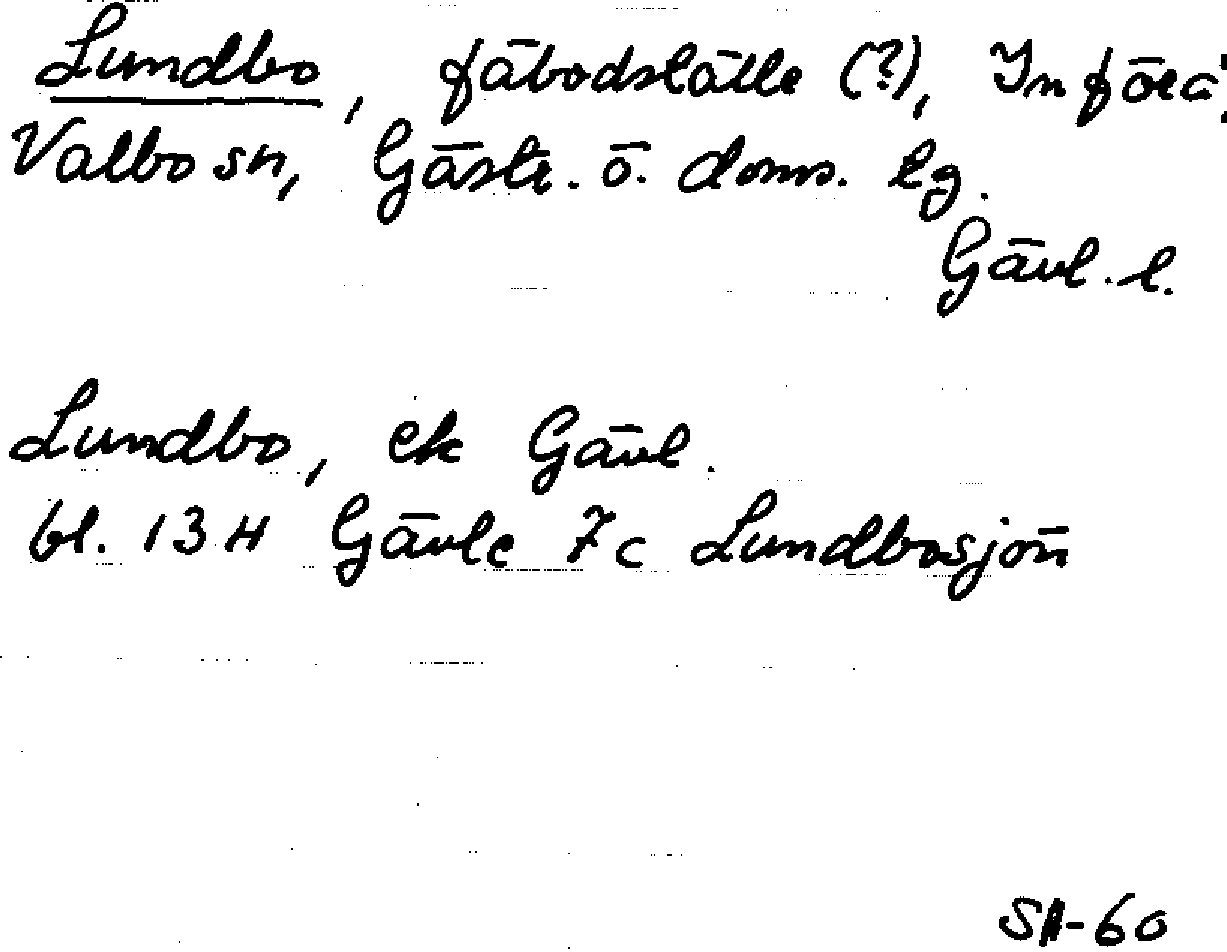 Lundbo, fäbodställe (?),
Valbo sn, Gästr. ö. doms. lg.
Gävl. l.
Lundbo, ek Gävl.
bl. 13 H Gävle 7c Lundbosjön
-60